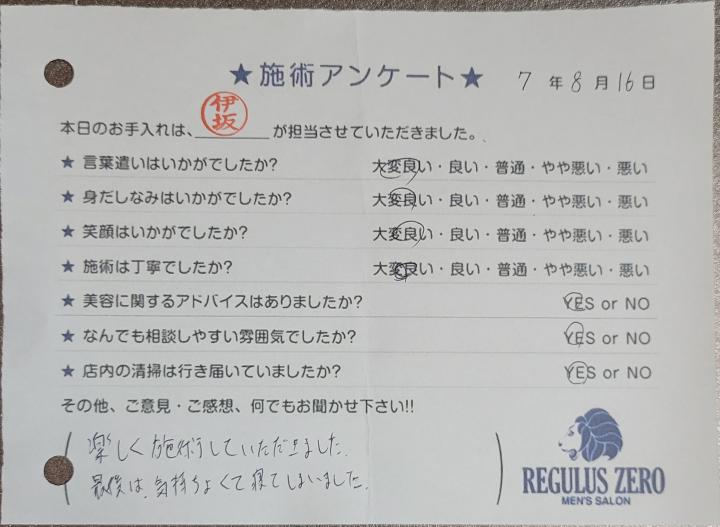 ★施術アンケート★ 7年8月16日
本日のお手入れは、伊坂が担当させていただきました。
★ 言葉遣いはいかがでしたか? 大変良い・良い・普通・やや悪い・悪い
★ 身だしなみはいかがでしたか? 大変良い・良い・普通・やや悪い・悪い
★ 笑顔はいかがでしたか? 大変良い・良い・普通・やや悪い・悪い
★ 施術は丁寧でしたか? 大変良い・良い・普通・やや悪い・悪い
★ 美容に関するアドバイスはありましたか? YES or NO
★ なんでも相談しやすい雰囲気でしたか? YES or NO
★ 店内の清掃は行き届いていましたか? YES or NO
その他、ご意見・ご感想、何でもお聞かせ下さい!!
楽しく施術していただきました.
最後は、気持ちよくて寝てしまいました.
REGULUS ZERO
MEN'S SALON